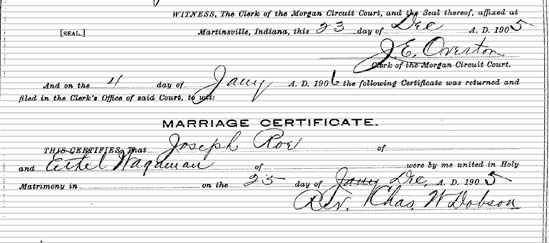 WITNESS, The Clerk of the Morgan Circuit Court, and the Seal thereof, affixed at
[SEAL.] Martinsville, Indiana, this 23 day of Dec A. D. 1905
J. E. Overton
Clerk of the Morgan Circuit Court.
And on the 4 day of Jany A. D. 1906 the following Certificate was returned and
filed in the Clerk's Office of said Court, to wit:
MARRIAGE CERTIFICATE.
THIS CERTIFIES, That Joseph Roe of
and Ethel Wagaman of were by me united in Holy
Matrimony in on the 25 day of Jany Dec. A. D. 1905
Rev. Chas. W Dobson